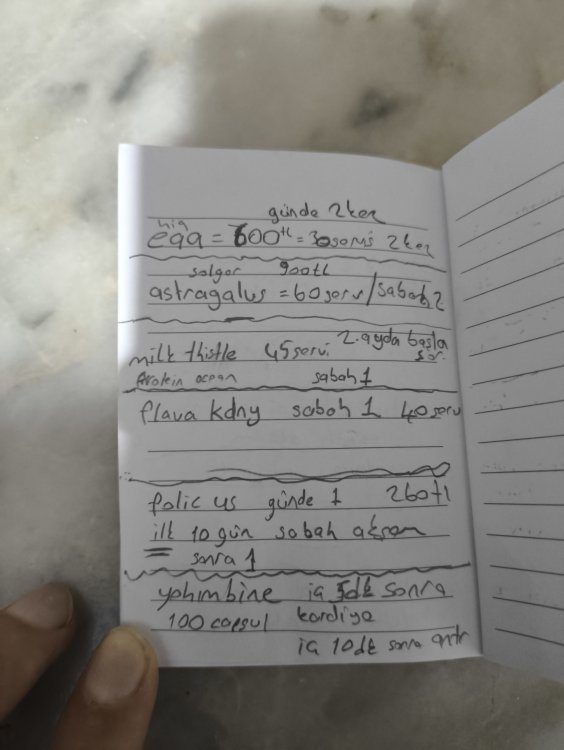 günde 2 kez
hiq
eqa = 600tl = 30 servis 2 kez
solgar 900tl
astragalus = 60 serv / sabah 2
milk thistle 45 servi. 2. ayda başla
protein ocean sabah 1
flava kdny sabah 1 40 serv
folic us günde 1 260tl
ilk 10 gün sabah akşam
sonra 1
yohimbine iç 5dk sonra
100 capsul kardiyo
iç 10dk sonra antr